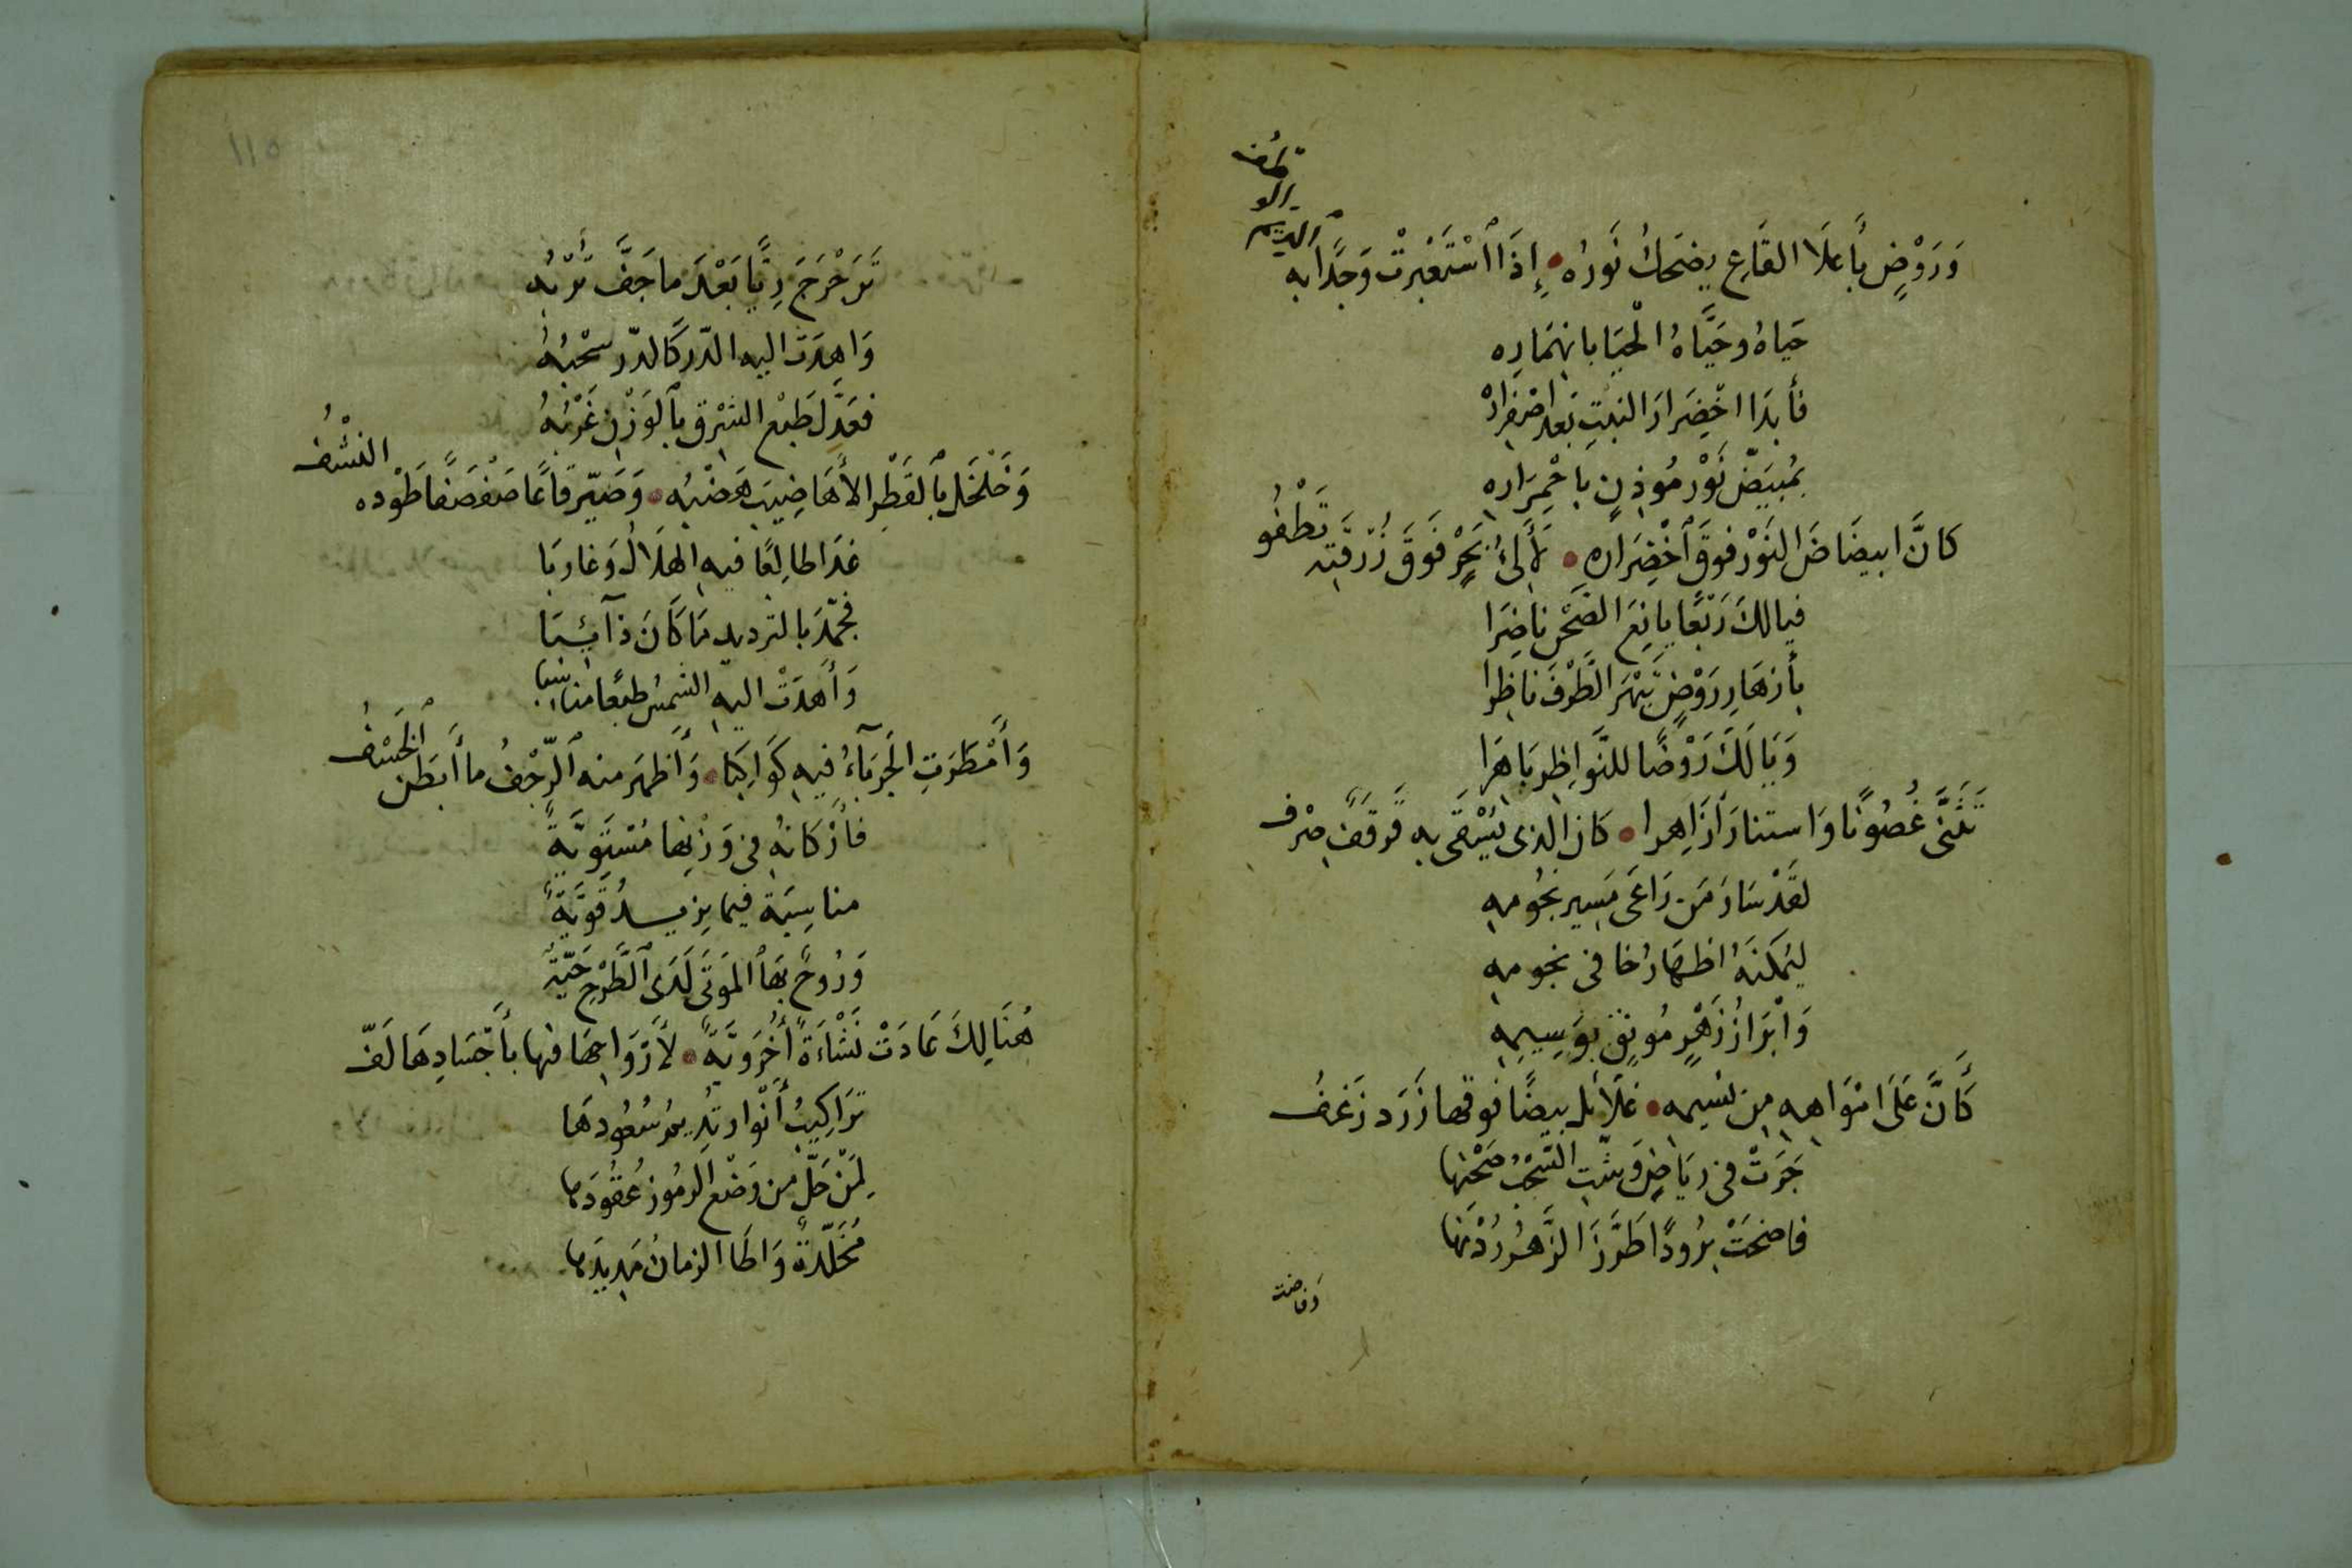 وَرَوْضٍ بأَعلَا القَاعِ يضحَكُ نَورُه • إِذَا ٱسْتَعْبَرتْ وَجدًا به الديم
حَيَاهُ وحَيَّاهُ الْحَيَا بانهمَارِه
فأبدَا اخْضِرارَ النبتِ بَعد اصْفِرَارِهْ
بمُبيَضّ نَوْرٍ مُوذِنٍ بِاحْمِرَاره
كانَّ ابيضَاضَ النَوْر فوقَ ٱخْضِرَارهِ • لآلئُ بَحْرٍ فَوقَ زُرْقَتِه تَطْفُو
فيالكَ رَبْعًا يانِعَ الصَحْنِ ناضِرَا
بأزهَارِ رَوْضٍ تَبْهَرَ الطَّرْفَ ناظِرا
وَيَالَكَ رَوْضًا للنَّواظِرِ بَاهِرَا
تَثَنَّى غُصُونًا وَاستنارَ أزَاهِرا • كان الذى يُسْقَى به قَرقَفٌ صِرْف
لقَدْ سَادَ مَن رَاعَى مَسِيرِ نجُومهِ
ليُمكنَهُ اظهَارُ خافى نجومهِ
وَابْرَازُ زَهْرٍ مُونِقٍ بوَسِيمِهِ
كَأَنَّ عَلَى امْوَاهِهِ مِن نسيمه • غلَائل بيضًا فوقها زَرَد زَغفُ
جَرَتْ فى ريَاضٍ وَشّتِ السُّحْبُ صَحْنَها
فاضحَتْ بُرُودًا طَرَّزَ الزَّهْرُ رُدْنَها
وفاضت
١١٥
تَرَجْرَجَ رِيًّا بَعْدَ ما جَفَّ تُرْبُه
وَاهدَت اليهِ الدّر كَالدّر سُحْبُهُ
فعَدَّلَ طَبْعَ الشَرْقِ بٱلوَزْنِ غَرْبُهُ
وَخَلْخَل بٱلقَطْرِ الأهَاضِيبَ هَضْبُه • وَصَيّر قاعًا صَفْصَفًا طَوْده النَسْفُ
غدَا طالِعًا فيهِ الهلَالُ وَغاربَا
فجمّدَ بالترديدِ مَا كَانَ ذآئبَا
وَأهدَتْ اليهِ الشمسُ طبعًا مناسبا
وَأَمْطَرَتِ الجَربَآءُ فيهِ كَوَاكِبَا • وَأَظهَر منه ٱلرّجْفُ ما أبطن ٱلخَسْفُ
فأَرْكانُهُ فى وَزْنِها مُسْتَوِيَّةٌ
مناسِبَة فيما يزيدُ قُوَيَّةٌ
وَرُوحٌ بهَا ٱلمَوتَى لَدَى ٱلطَّرْحِ حَيّةٌ
هُنَالِكَ عَادَتْ نَشْاءَةً أُخْرَويَّةً • لأَرْوَاحِهَا فيها بأَجْسَادِهَا لَفّ
تَرَاكِيبُ أَنْوارٍ تُدِيمُ سُعُودهَا
لِمَنْ حَلَّ من وَضْعِ الرمُوزِ عُقُودَها
مُخَلّدةٌ وَاطَا الزمانُ مَدِيدَها